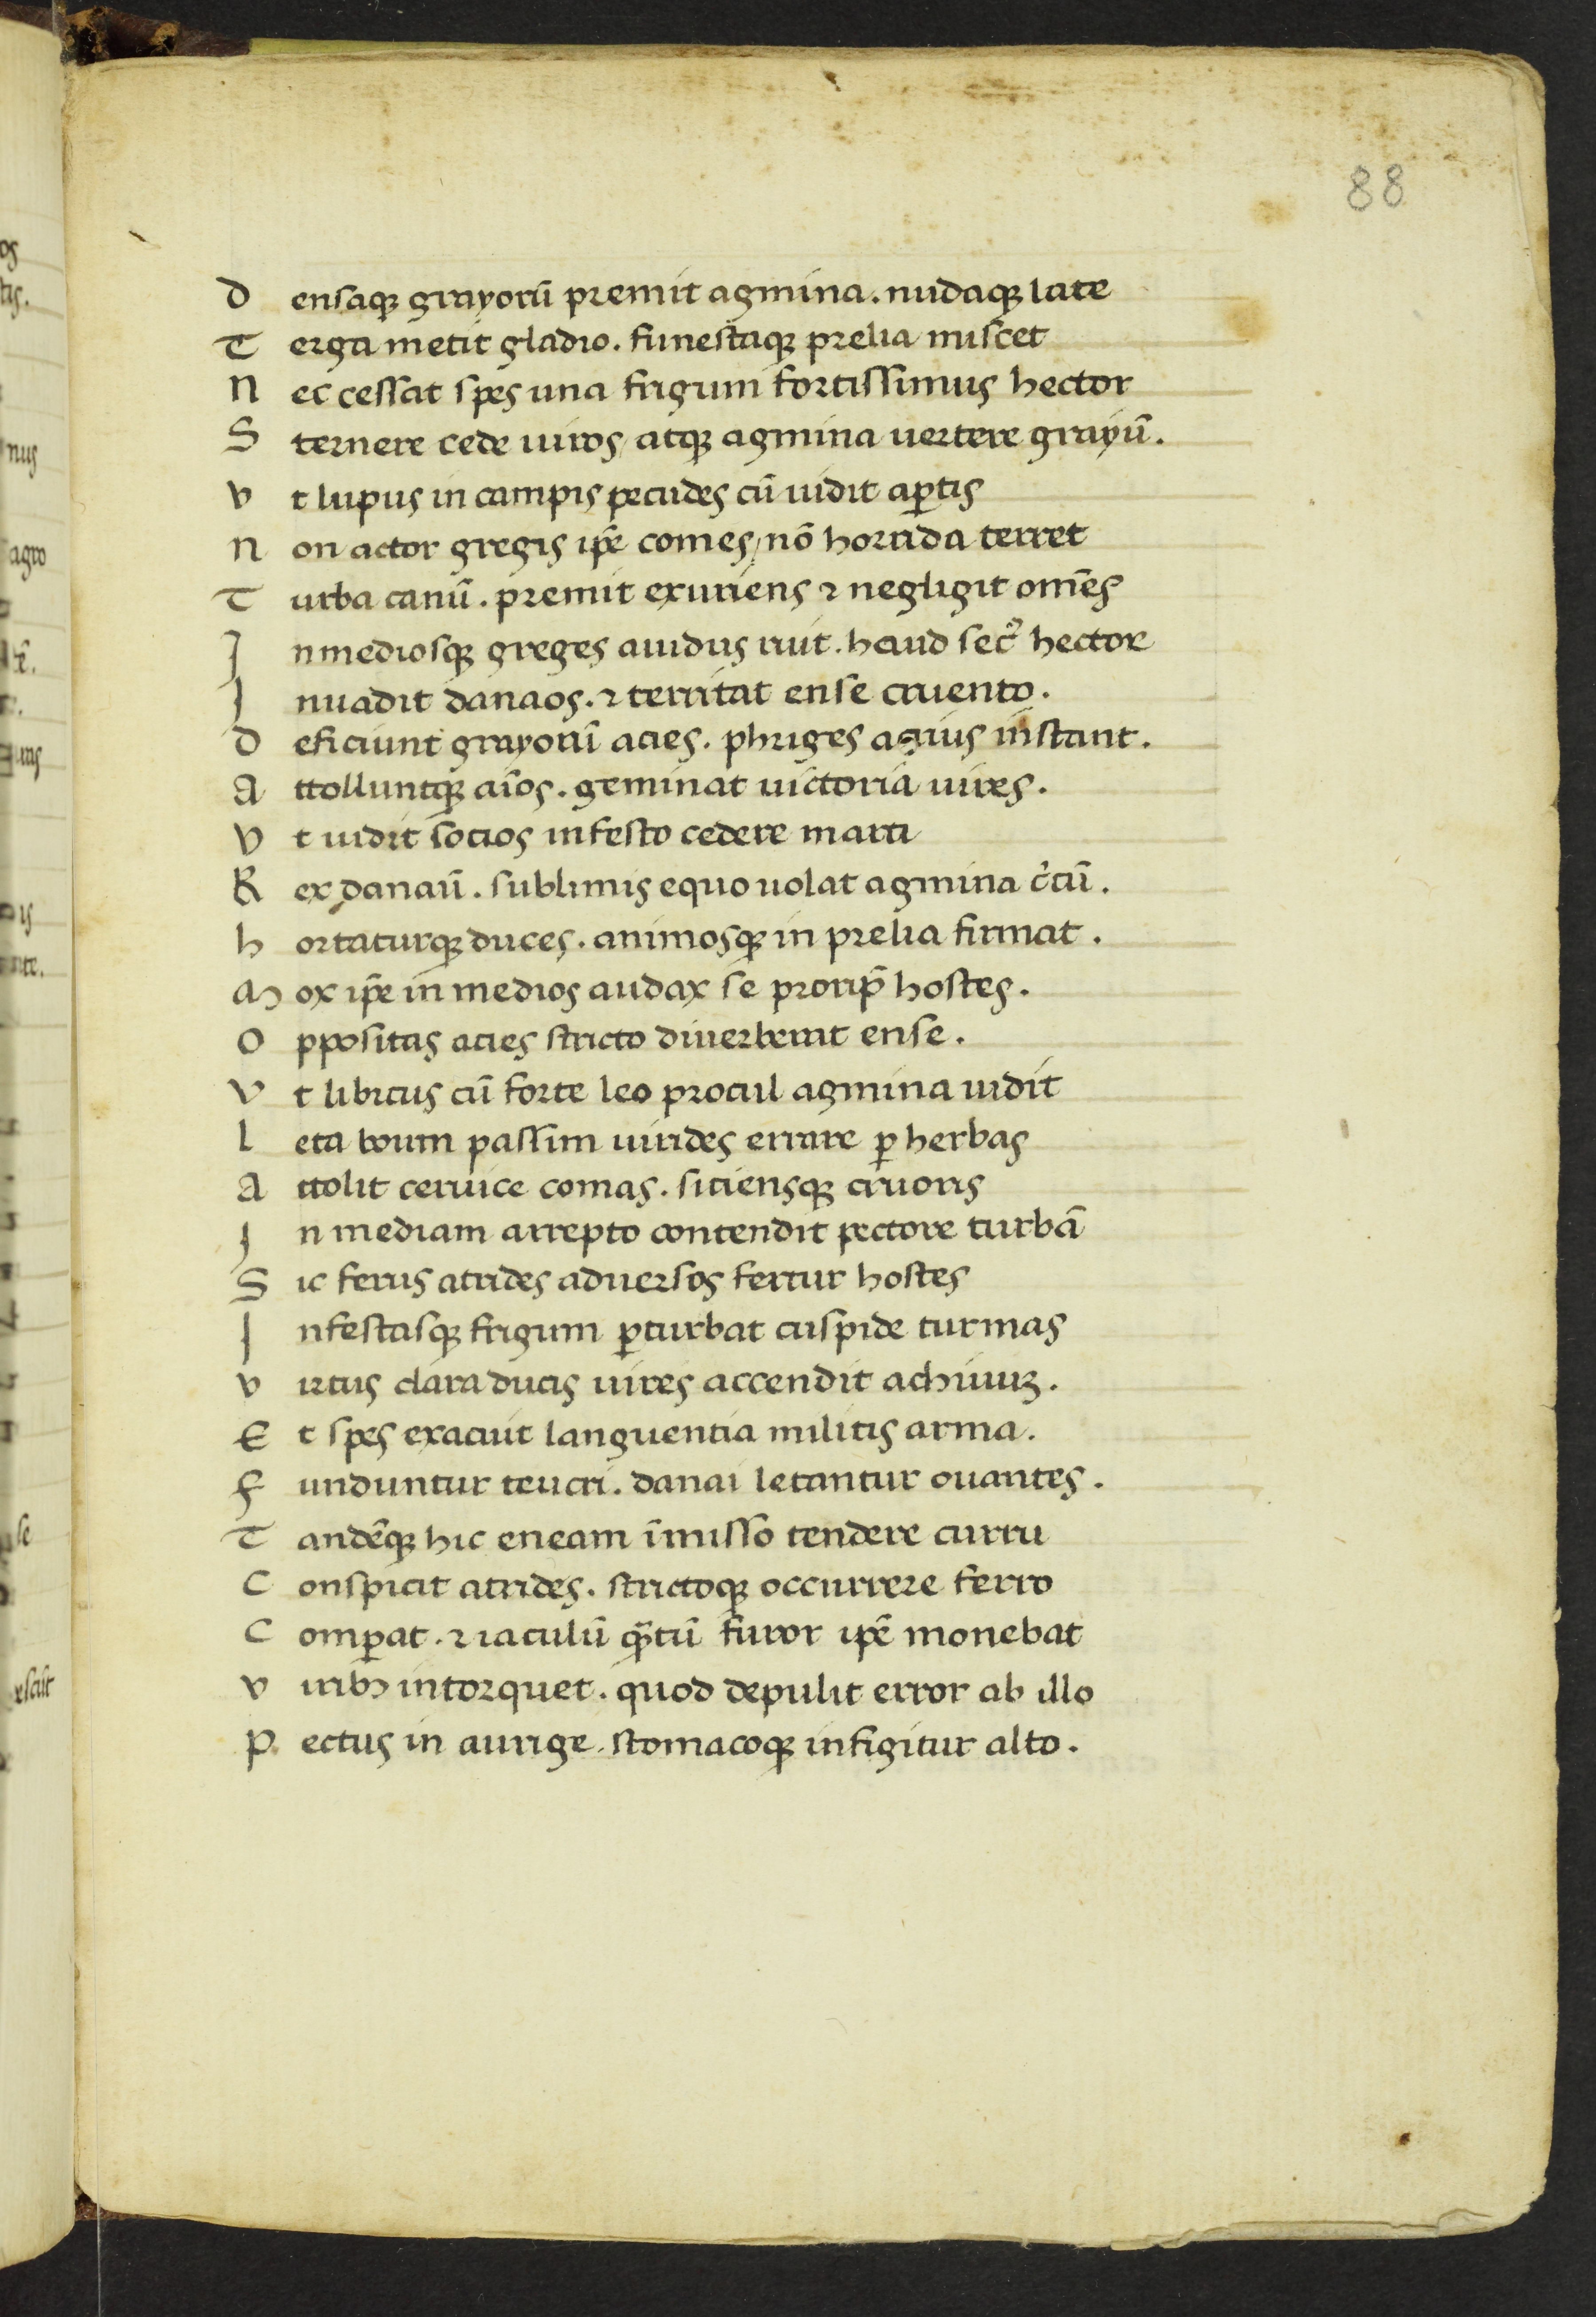 88
D ensaqꝫ grayorū premit agmina. nudaqꝫ late
T erga metit gladio. funestaqꝫ prelia miscet
N ec cessat spes una frigum fortissimus hector
S ternere cede uiros / atqꝫ agmina uertere grayū.
V t lupus in campis pecudes cū uidit aꝑtis
N on actor gregis ip̄e comes / nō horrida terret
T urba canū. premit exuriens ⁊ negligit om̄es
I n mediosqꝫ greges auidus ruit. haud sec᾽ hector
I nuadit danaos. ⁊ territat ense cruento.
D eficiunt grayorū acies. phriges acrius instant.
A ttolluntqꝫ aīos. geminat uictoria uires.
V t uidit socios infesto cedere marti
R ex danaū. sublimis equo uolat agmina c᾽cū.
h ortaturqꝫ duces. animosqꝫ in prelia firmat.
M ox ip̄e in medios audax se prorip̄ hostes.
O ppositas acies stricto diuerberat ense.
V t libicus cū forte leo procul agmina uidit
l eta boum passim uirides errare ꝑ herbas
A ttolit ceruice comas. sitiensqꝫ cruoris
I n mediam arrepto contendit pectore turbā
S ic ferus atrides aduersos fertur hostes
I nfestasqꝫ frigum ꝑturbat cuspide turmas
V irtus clara ducis uires accendit achiuuꝫ.
E t spes exacuit languentia militis arma.
F unduntur teucri. danai letantur ouantes.
T andēqꝫ hic eneam īmisso tendere curru
C onspicit atrides. strictoqꝫ occurrere ferro
C omꝑat. ⁊ iaculū qᷓtū furor ip̄e monebat
V iribꝫ intorquet. quod depulit error ab illo
P ectus in aurige. stomacoqꝫ infigitur alto.